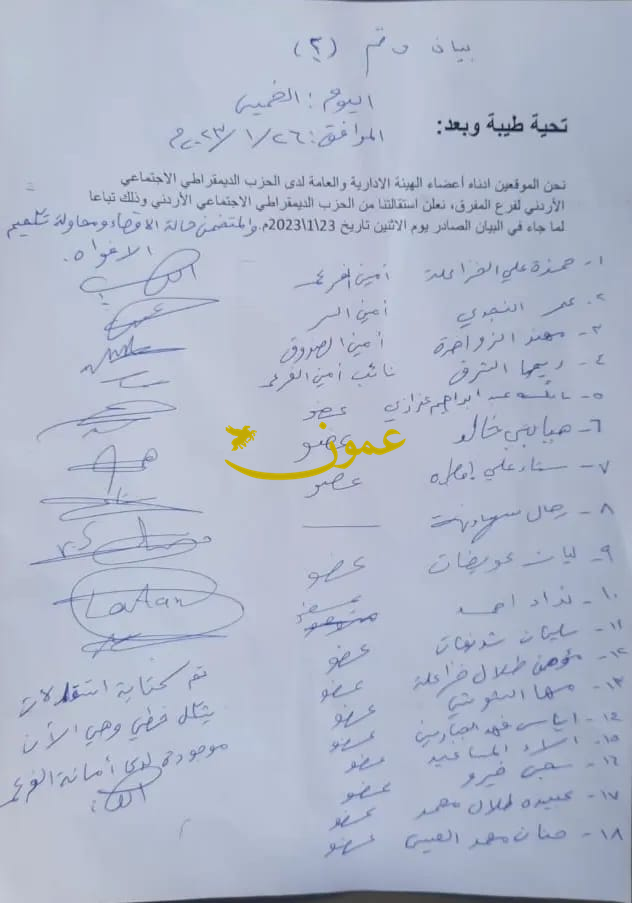 بيان رقم (٢)
اليوم : الخميس
الموافق : ٢٦ / ١ / ٢٠٢٣م
تحية طيبة وبعد:
نحن الموقعين ادناه أعضاء الهيئة الادارية والعامة لدى الحزب الديمقراطي الاجتماعي
الأردني لفرع المفرق، نعلن استقالتنا من الحزب الديمقراطي الاجتماعي الأردني وذلك تباعا
لما جاء في البيان الصادر يوم الاثنين تاريخ 23\1\2023م. والمتضمن حالة الاقصاء ومحاولة تكميم
الافواه.
١- حمزة علي الخزاعلة أمين الفرع
٢- عمر النجدي أمين السر
٣- مهند الزواهرة أمين الصندوق
٤- ريما الشرق نائب أمين الفرع
٥- عبد ابراهيم عضو
٦- خالد عضو
٧- سناء علي عضو
٨- رجال
٩- ليان عويضات عضو
١٠- نداد احمد عضو
١١- سليمان عضو
١٢- مؤمن طلال خزاعلة عضو
١٣- مها عضو
١٤- اياس فهد الجبارين عضو
١٥- اسلاء المساعيد عضو
١٦- خيرو عضو
١٧- عبيده طلال محمد عضو
١٨- حنان محمد العيسى عضو
تم كتابة استقالات
بشكل خطي وهي الآن
موجودة لدى أمانة الفرع
عمون